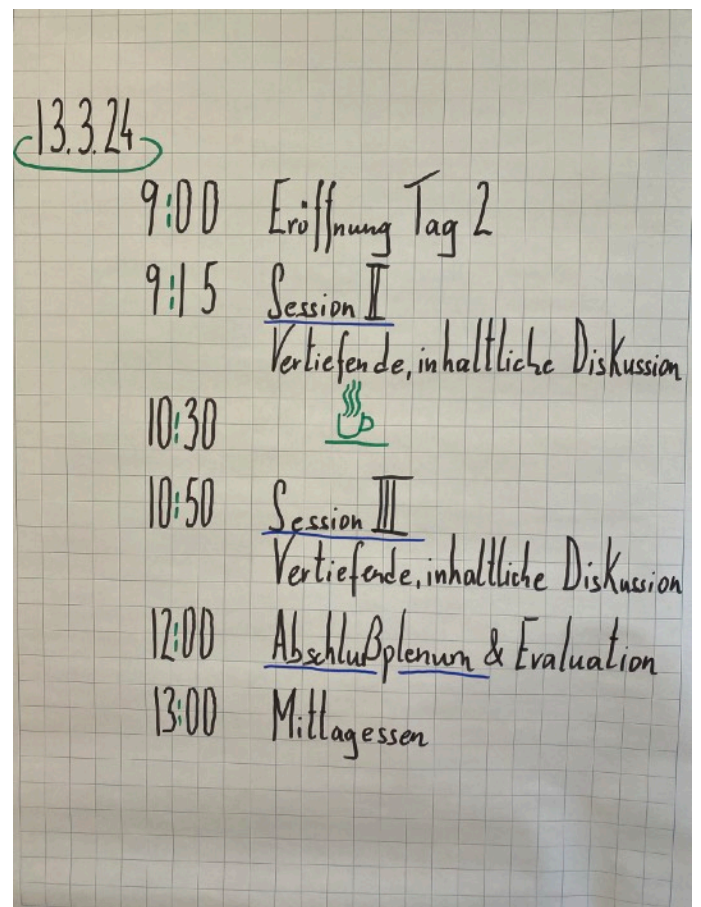 13.3.24
9:00 Eröffnung Tag 2
9:15 Session II
Vertiefende, inhaltliche Diskussion
10:30
10:50 Session III
Vertiefende, inhaltliche Diskussion
12:00 Abschlußplenum & Evaluation
13:00 Mittagessen